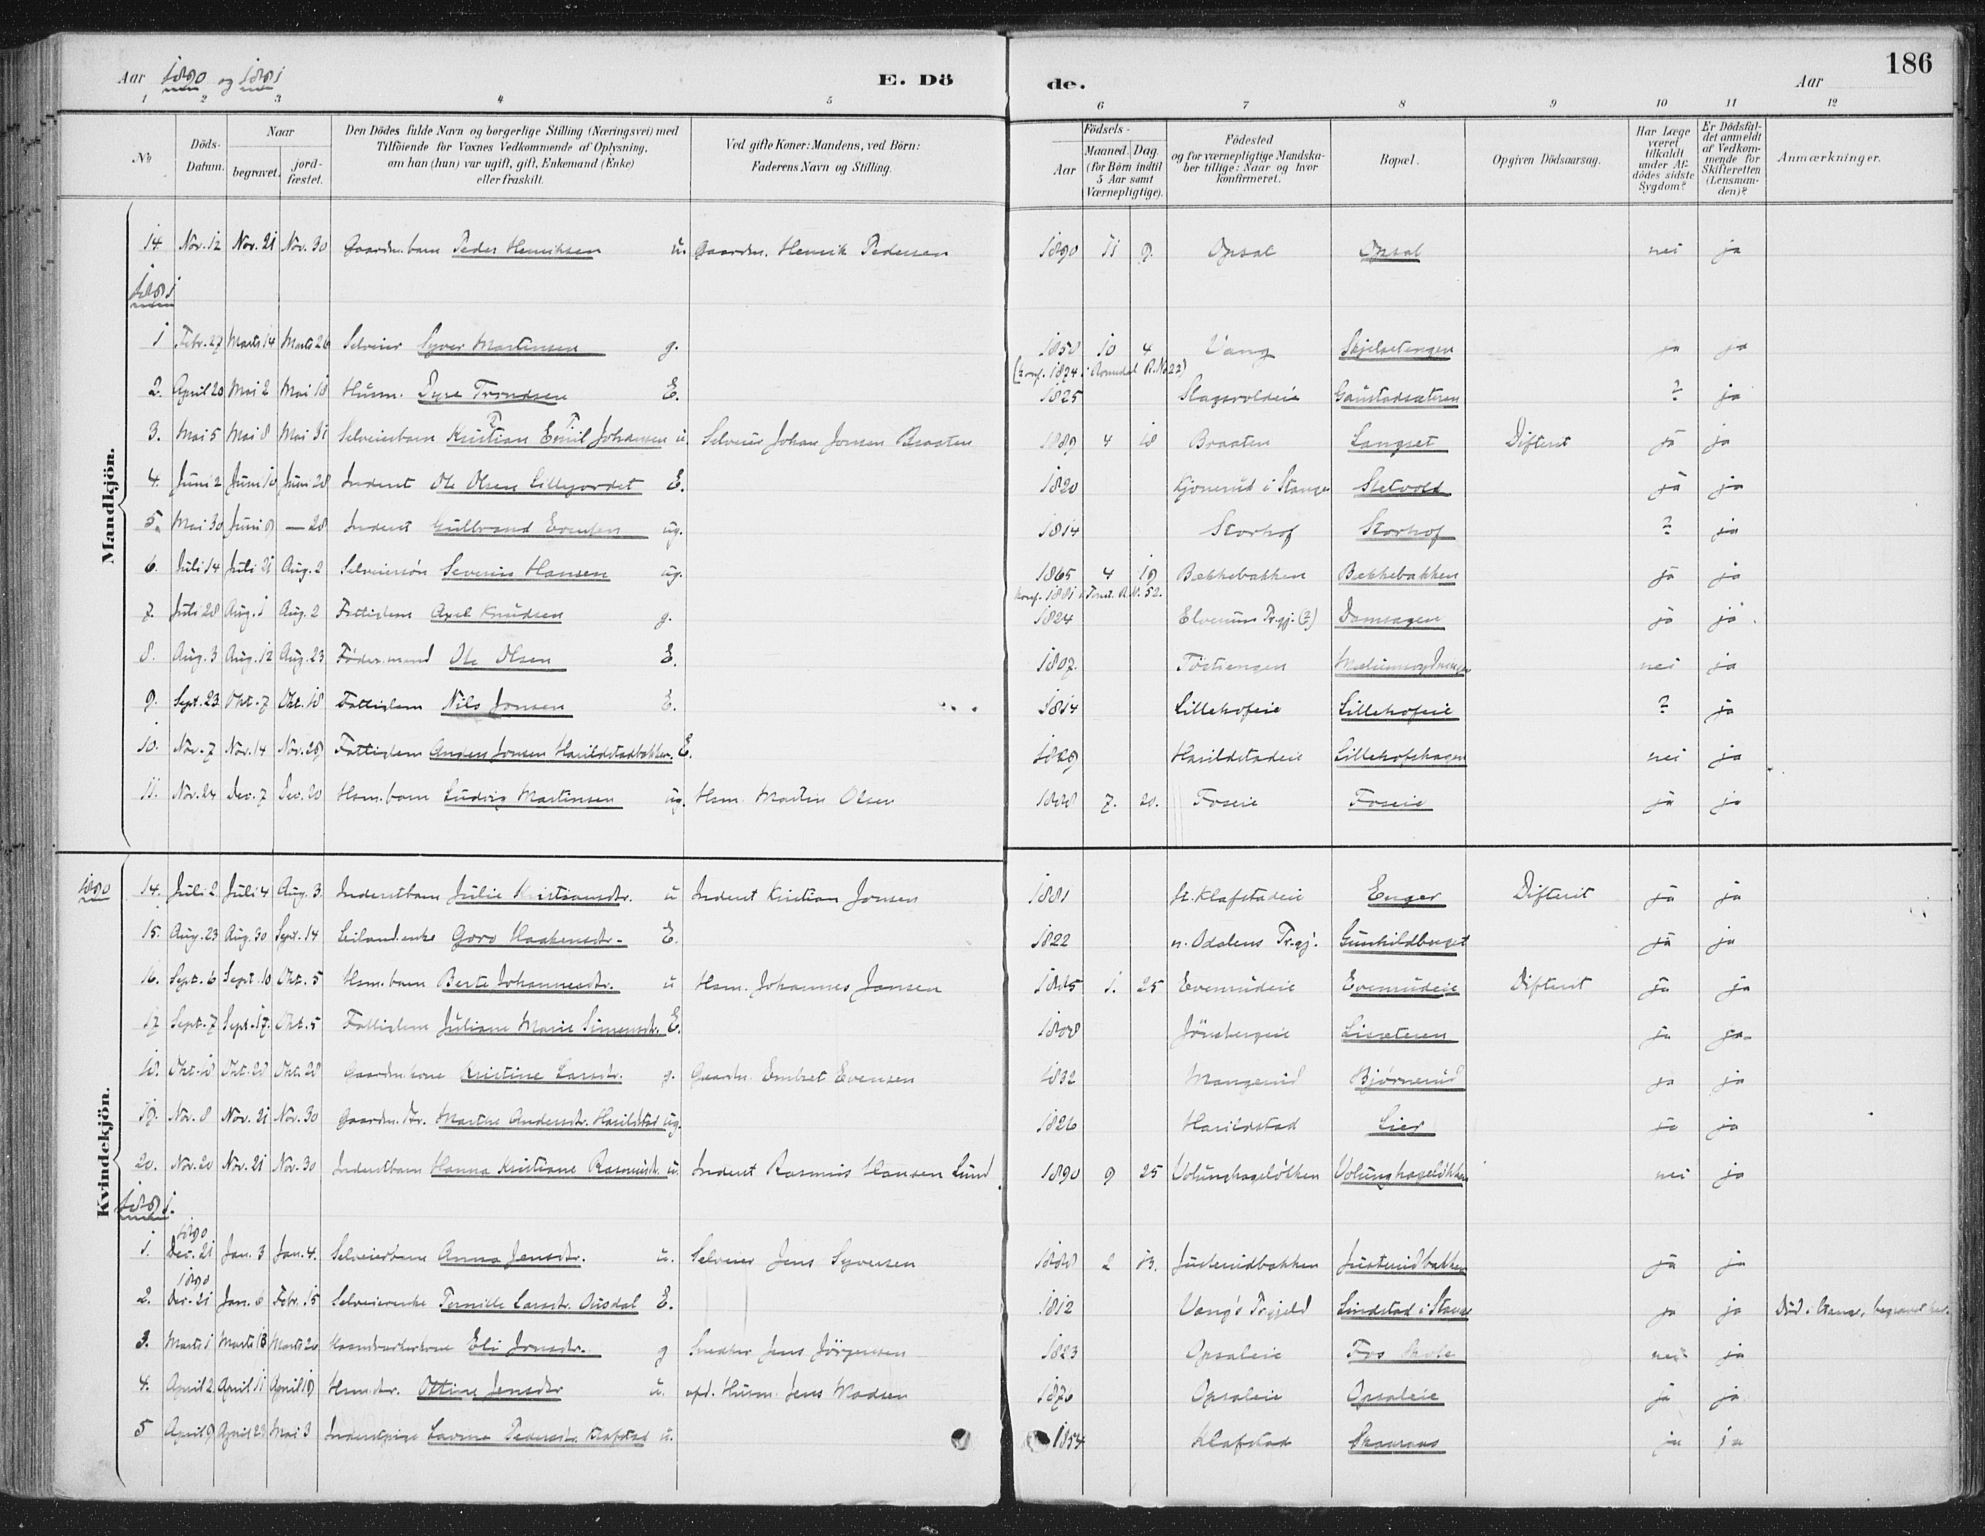 Aar 1890 og 1891
E. Dö
de.
Aar
186
1 2 3 4 5 6 7 8 9 10 11 12
No
Döds-Datum.
Naar
begravet.
jord-fæstet.
Den Dödes fulde Navn og borgerlige Stilling (Næringsvei) med
Tilföiende for Voxnes Vedkommende af Oplysning,
om han (hun) var ugift, gift, Enkemand (Enke)
eller fraskilt.
Ved gifte Koner: Mandens, ved Börn:
Faderens Navn og Stilling.
Födsels-
Aar
Maaned. Dag
(for Börn indtil
5 Aar samt
Værnepligtige).
Födested
og for værnepligtige Mandska-
ber tillige: Naar og hvor
konfirmeret.
Bopæl.
Opgiven Dödsaarsag.
Har Læge
været
tilkaldt
under Af-
dödes sidste
Sygdom?
Er Dödsfal-
det anmeldt
af Vedkom-
mende for
Skifteretten
(Lensman-
den)?
Anmærkninger.
Mandkjön.
14 Nov. 12 Nov. 21 Nov. 30 Gaardm. barn Peder Henriksen u. Gaardm. Henrik Pedersen 1890 11 9. Opsal Opsal nei ja
1891
1 Febr. 27 Marts 14 Marts 26 Selveier Syver Martinsen g. 1850 10 4 Vang ja ja
(konf. 1874 i Romedal R. No 22)
2. April 20 Mai 2 Mai 18 Husm. E. 1825 Gaustadsæteren ? ja
3. Mai 5 Mai 8 Mai 31 Selveierbarn Kristian Emil Johansen u. Selveier Johan Jonsen Braaten 1889 4 18 Braaten Langset Difterit ja ja
4. Juni 2 Juni 10 Juni 28 Inderst Ole Olsen Lillejordet E. 1820 i Stange ja ja
5. Mai 30 Juni 9 — 28 Inderst Gulbrand Evensen ug. 1814 Storhof Storhof ? ja
6. Juli 14 Juli 21 Aug. 2 Selveiersön Severin Hansen ug. 1865 4 19 Bækkebakken Bækkebakken ja ja
konf. 1881 R. N. 52.
7. Juli 28 Aug. 1 Aug. 2 Fattiglem Axel Knudsen g. 1824 Elverum Pr.gj. (?) Damsagen ja ja
8. Aug. 3 Aug. 12 Aug. 23 Föder.mand Ole Olsen E. 1807. nei ja
9. Sept. 23 Okt. 7 Okt. 18 Fattiglem Nils Jonsen E. 1814 Lillehofeie Lillehofeie ? ja
10. Nov. 7 Nov. 14 Nov. 29 Fattiglem Anders Jonsen Harildstadbakken. E. 1829 Harildstadeie Lillehofshagen nei ja
11. Nov. 24 Dec. 7 Dec. 20 Hsm. barn Ludvig Martinsen ug. Hsm. Martin Olsen 7. 20. Foseie Foseie ja ja
Kvindekjön.
1890 14. Juli 2 Juli 4 Aug. 3 Inderstbarn Julie Kristiansdtr. u Inderst Kristian Jonsen 1881 st. Klafstadeie Enger Difterit ja ja
15. Aug. 23 Aug. 30 Sept. 14 Leiland.enke Goro Haakensdtr. E. 1822 n. Odalens Pr.gj. Gunhildberget ja ja
16. Sept. 6 Sept. 10 Okt. 5 Hsm. barn Berte Johannesdtr. u Hsm. Johannes Jansen 1885 1. 25 Evenrudeie Evenrudeie Difterit ja ja
17 Sept. 7 Sept. 17. Okt. 5 Fattiglem Juliane Marie Simensdtr. E. Jönsbergeie Lisæteren ja ja
18. Okt. 18 Okt. 28 Okt. 28 Gaardm.kone Kristine Larsdtr. g. Gaardm. Embret Evensen 1832 Mangerud Bjørnerud ja ja
19. Nov. 8 Nov. 21 Nov. 30 Gaardm. Dtr. Marthe Andersdtr. Harildstad ug. 1826 Harildstad Lier ja ja
20. Nov. 20 Nov. 21 Nov. 30 Inderstbarn Hanna Kristiane Rasmusdtr. u. Inderst Rasmus Hansen Lund 1890 9 25 Volunghagelökken Volunghagelökken nei ja
1891.
1. 1890 Dec. 21 Jan. 3 Jan. 4. Selveierbarn Anna Jensdtr. u. Selveier Jens Syversen 2 Justerudbakken Justerudbakken ja ja
2. 1890 Dec. 21 Jan. 6 Febr. 15 Selveierenke Pernille Larsdtr. Ousdal E. 1812 Vang's Pr.gjeld Lindstad i Stange ja ja Död i Stange, begravet her.
3. Marts 1 Marts 13 Marts 20 Haandverkerkone Eli Jonsdtr. g Snedker Jens Jörgensen 1823 Opsaleie Fos Skole nei ja
4. April 2 April 11 April 19 Hsm.dtr. Ottine Jensdtr u. opf. Husm. Jens Madsen 1876 Opsaleie Opsaleie ja ja
5 April 9 April 23 Mai 3 Inderstpige Lavine Pedersdtr. Klafstad u. 1854 Klafstad ja ja